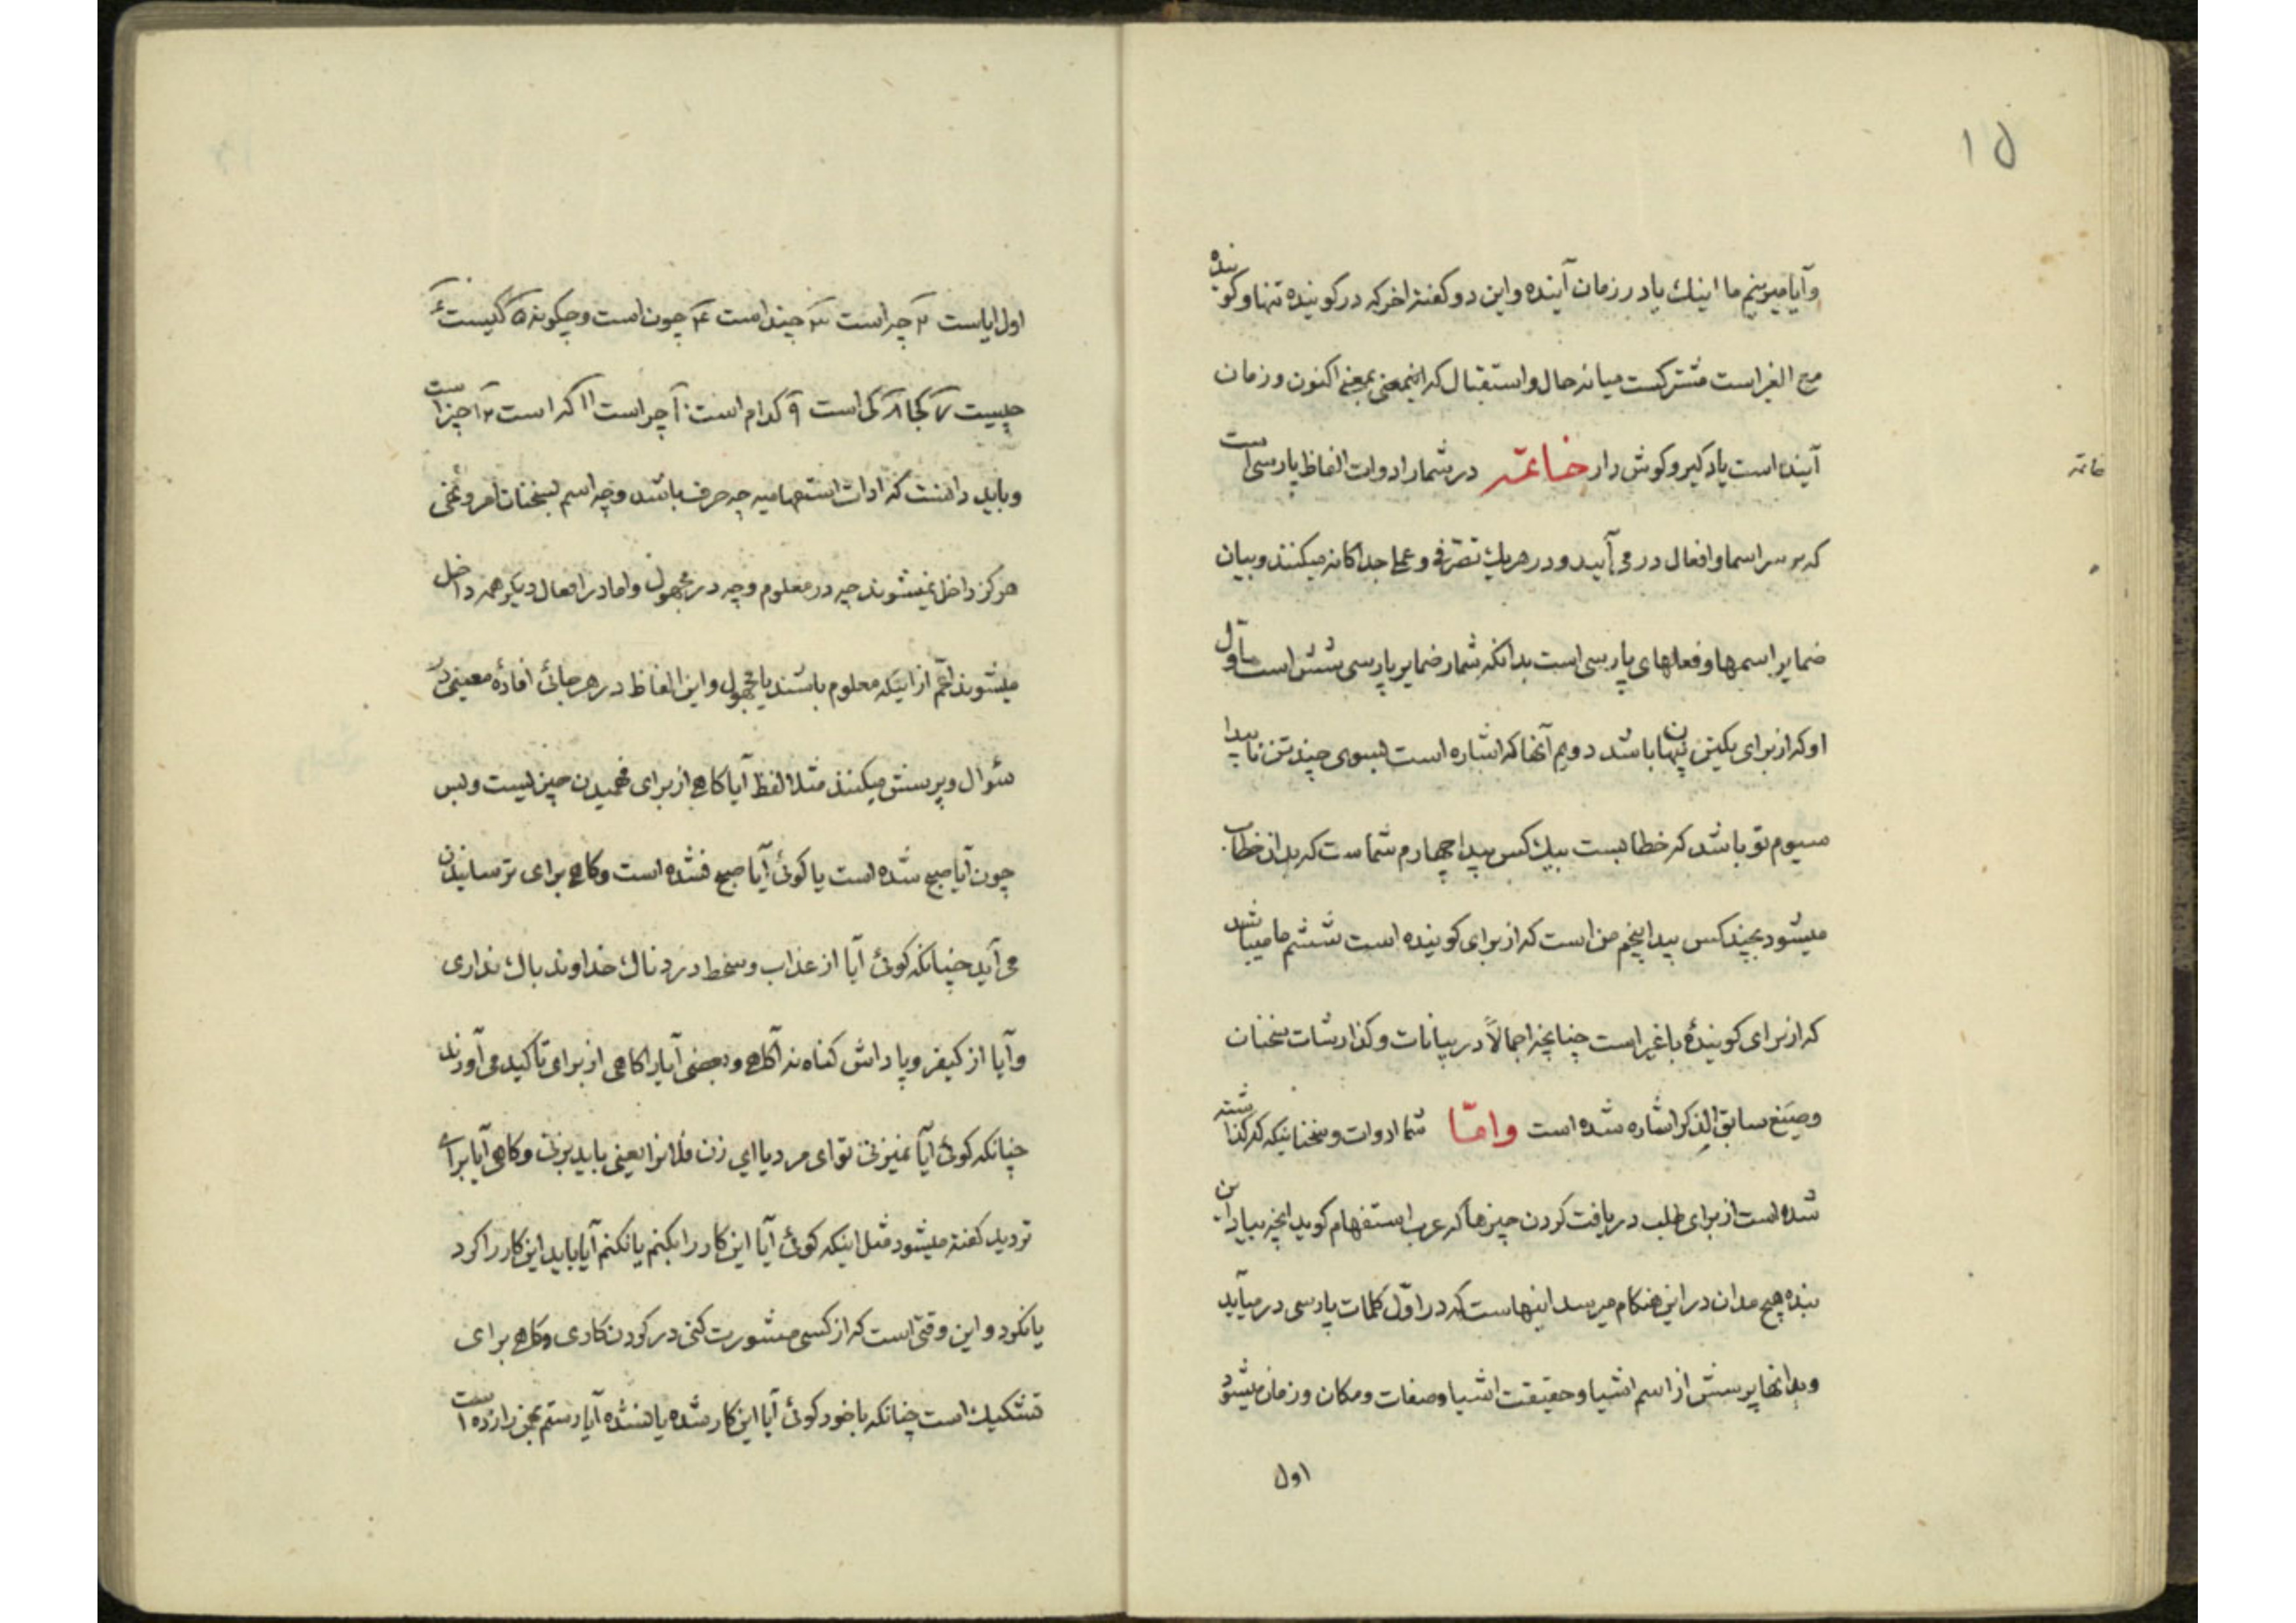 ۱۵
وآیا میزنیم ما اینك یا در زمان آینده و این دو کفته اخر که در کوینده تنها و کوینده
مع الغیر است مشترکست میانه حال و استقبال که اینمعنی بمعنی اکنون و زمان
آینده است یاد کیر و کوش دار خاتمه در شمار ادوات الفاظ پارسی است
خاتمه
که بر سر اسما و افعال در می آیید و در هریك تصرّفی و عملی جداکانه میکنند و بیان
ضمایر اسمها و فعلهای پارسی است بدانکه شمار ضمایر پارسی شش است اول
او که از برای یکتن پنهان باشد دویم آنها که اشاره است بسوی چند تن ناپیدا
سیوم تو باشد که خطابست بیك کس پیدا چهارم شماست که بدان خطاب
میشود بچند کس پیدا پنجم من است که از برای کوینده است ششم ما میباشد
که از برای کویندهٔ با غیر است چنانچه اجمالاً در بیانات و کذارشات سخنان
وصیَغ سابق الذِکر اشاره شده است وامّا شما ادوات و سخنانیکه که کذاشته
شده است از برای طلب دریافت کردن چیزها که عرب استفهام کوید انچه بیاد این
بنده هیچ مدان در این هنکام میرسد اینهاست که در اوّل کلمات پارسی در میآید
وبدانها پرسش از اسم اشیا و حقیقت اشیا و صفات و مکان و زمان میشود
اول
اول ایاست ۲ چراست ۳ چند است ۴ چون است و چکونه ۵ کیست ۶
چیست ۷ کجا ۸ کی است ۹ کدام است ۱۰ چراست ۱۱ که است ۱۲ چیزاست
و باید دانست که ادات استفهامیه چه حرف باشد و چه اسم بسخنان امر و نهی
هرکز داخل نمیشوند چه در معلوم و چه در مجهول و اما در افعال دیکر همه داخل
میشوند اعم از اینکه معلوم باشند یا مجهول و این الفاظ در هرجائی افادهٔ معنی در
سئوال و پرسش میکنند مثلا لفظ آیا کاهی از برای فهمیدن چیزیست و بس
چون آیا صبح شده است یا کوئی آیا صبح نشده است و کاهی برای ترسانیدن
می آید چنانکه کوئی آیا از عذاب و سخط دردناك خداوند باك نداری
و آیا از کیفر و پاداش کناه نه آکاهی و بعضی آیا را کاهی از برای تاکید می آورند
چنانکه کوئی آیا نمیزنی تو ای مرد یا ای زن فلانرا یعنی باید بزنی و کاهی آیا برای
تردید کفته میشود مثل اینکه کوئی آیا این کار را بکنم یا نکنم آیا باید این کار را کرد
یا نکرد و این وقتی است که از کسی مشورت کنی در کردن کاری و کاهی برای
تشکیك است چنانکه با خود کوئی آیا این کار شده یا نشده آیا رستم